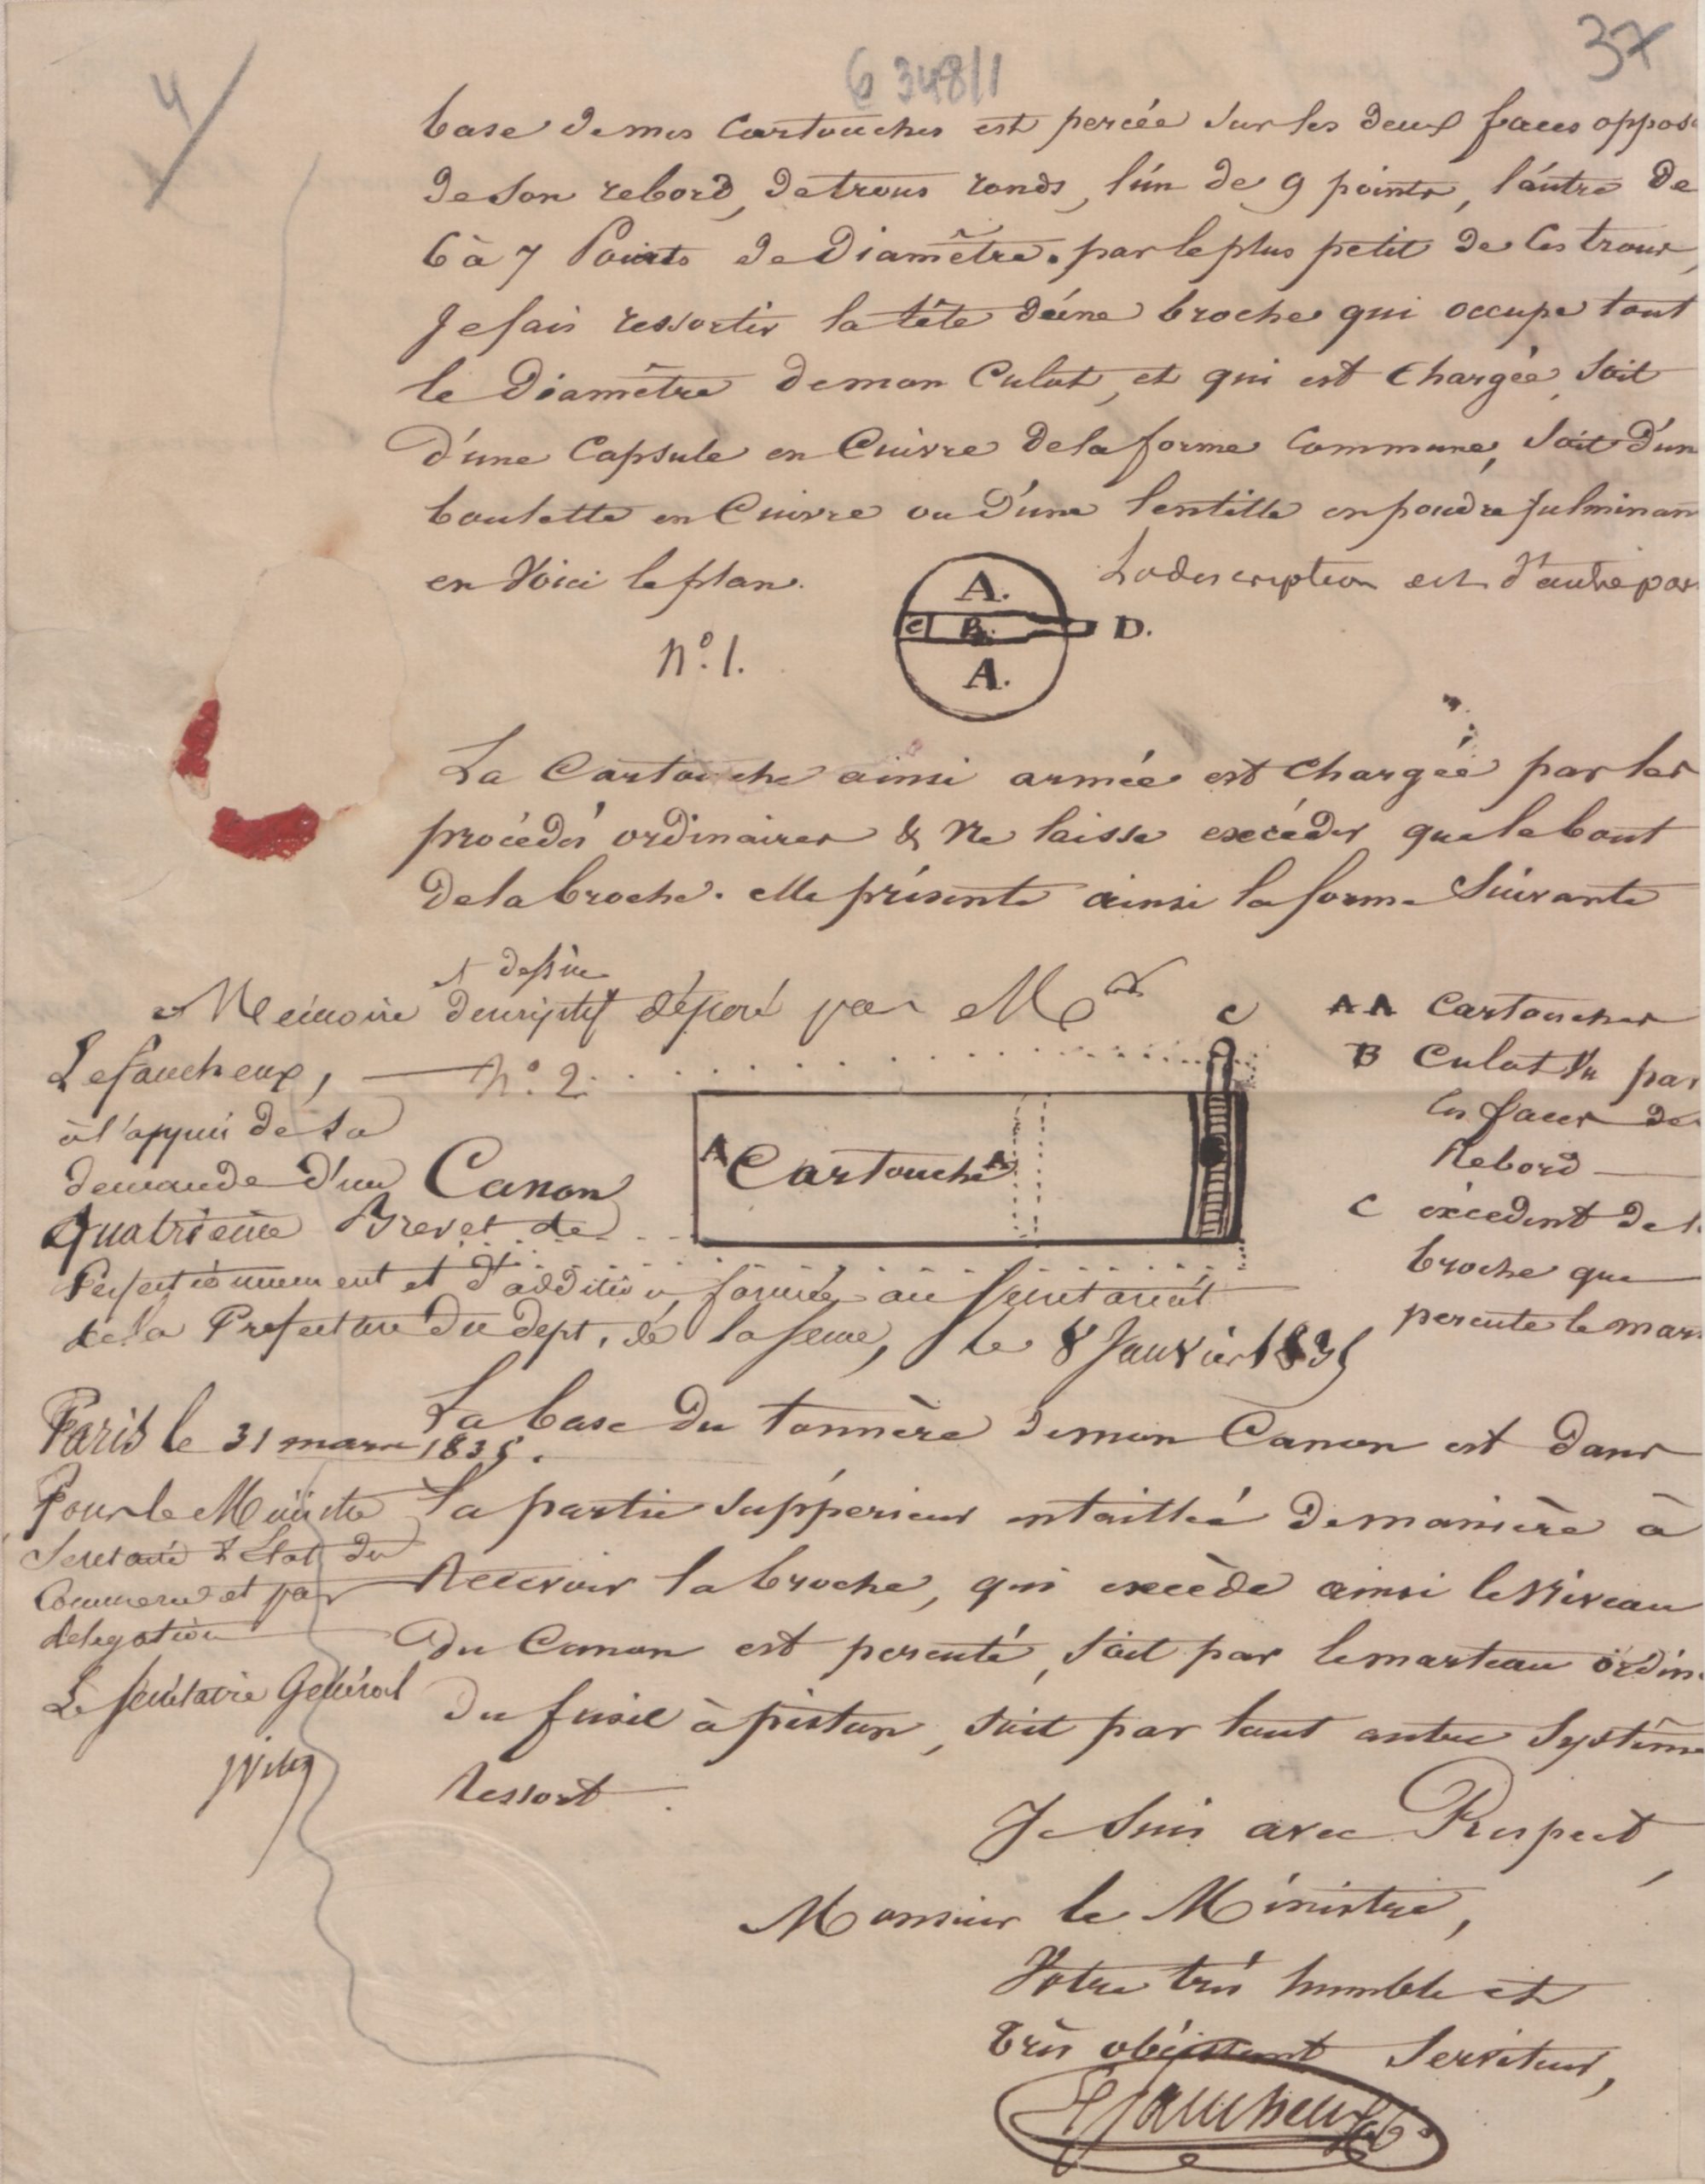 4
6 348/1
37
base de mes Cartouches est percée sur les deux faces oppos
de son rebord, de trous ronds, l'un de 9 points, l'autre de
6 à 7 Points de Diamêtre. par le plus petit de ces trous,
Je fais ressortir la tête d'une broche qui occupe tout
le Diamêtre de mon Culot, et qui est Chargée, soit
d'une Capsule en Cuivre de la forme Commune, soit d'un
boulette en Cuivre ou d'une lentille en poudre fulminan
en Voici le plan.
La description est d'autre par
n.° 1.
A.
C B. D.
A.
La Cartouche ainsi armée est Chargée par les
procédés ordinaires & Ne laisse excéder que le bout
de la broche. elle présente ainsi la forme Suivante
et dessin
Mémoire descriptif déposé par Mr
Lefaucheux,
n.° 2.
à l'appui de sa
demande d'un
quatrième Brevet de
Perfectionnement et d'addition, formée au Secrétariat
de la Préfecture du Dept. de la Seine, le 8 Janvier 1835
Canon
C
A Cartouche A
AA Cartouches
B Culot Vu par
les faces de
Rebord
C excédent de l
broche que
percute le mar
Paris le 31 mars 1835.
Pour le Ministre
Secrétaire d'Etat du
Commerce et par
délégation
Le Secrétaire Général
La base du tonnère de mon Canon est dans
la partie suppérieur entaillée de manière à
Recevoir la broche, qui excède ainsi le Niveau
du Canon est percuté, soit par le marteau ordin
du fusil à piston, soit par tout autre Systême
Ressort.
Je Suis avec Respect,
Monsieur le Ministre,
Votre très humble et
très obéissant Serviteur,
Lefaucheux